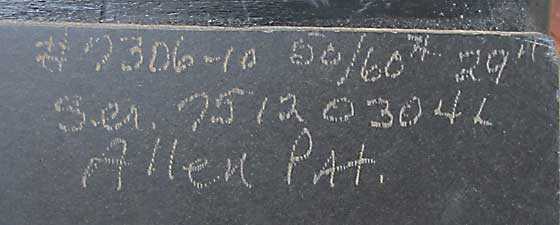 # 7306-10 50/60# 29"
Ser. 75120304L
Allen Pat.